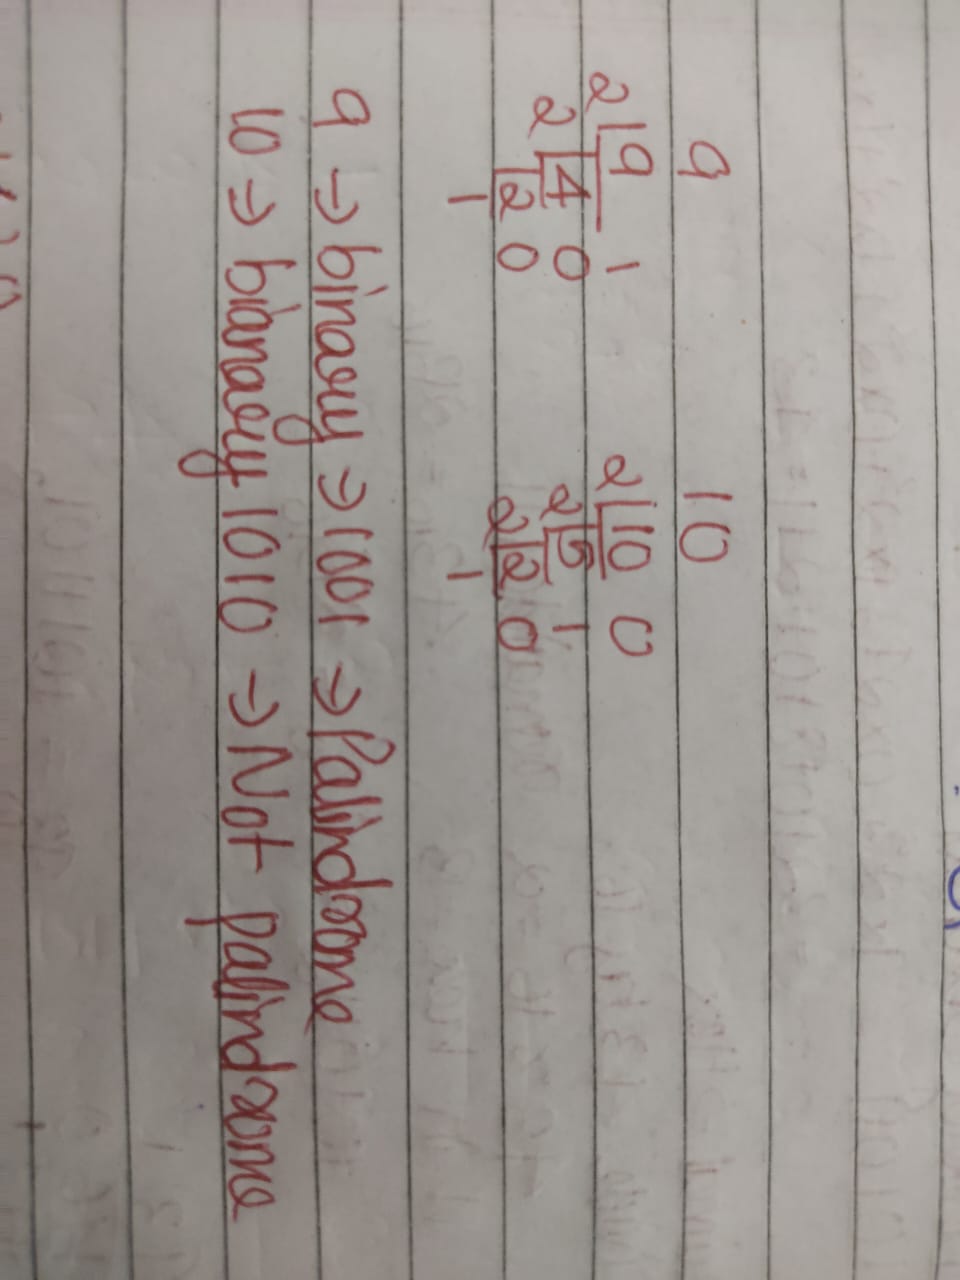 9 10
2|9 1 2|10 0
2|4 0 2|5 1
|2 0 2|2 0
1 1
9 → binary → 1001 → Palindrome
10 → bianary 1010 → Not palindrome